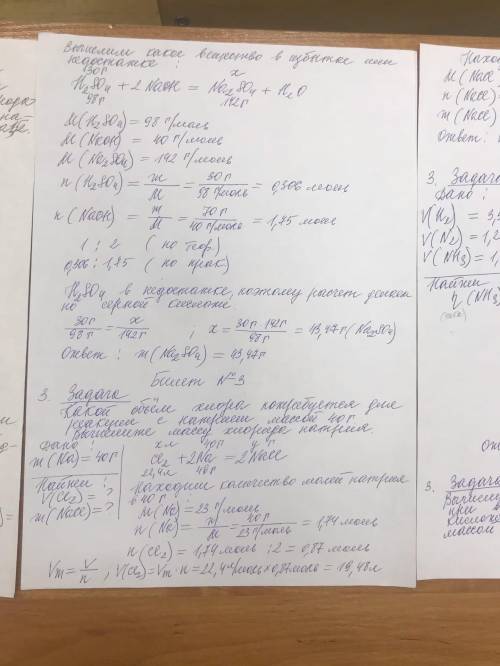 Вычислим какое вещество в избытке или
недостатке :
30г x
H₂SO₄ + 2 NaOH = Na₂SO₄ + H₂O
98г 142г
M(H₂SO₄) = 98 г/моль
M(NaOH) = 40 г/моль
M(Na₂SO₄) = 142 г/моль
n(H₂SO₄) = m/M = 30г/98 г/моль = 0,306 моль
n(NaOH) = m/M = 70г/40 г/моль = 1,75 моль
1 : 2 (по теор.)
0,306 : 1,75 (по прак.)
H₂SO₄ в недостатке, поэтому расчёт делаем
по серной кислоте
30г/98г = x/142г ; x = 30г · 142г/98г = 43,47г (Na₂SO₄)
Ответ : m(Na₂SO₄) = 43,47г
Билет № 3
3. Задача
Какой объём хлора потребуется для
реакции с натрием массой 40г
Вычислите массу хлорида натрия
Дано :
m(Na) = 40г
Найти :
V(Cl₂) = ?
m(NaCl) = ?
x л 40г y г
Cl₂ + 2Na = 2NaCl
22,4л 46г
Находим количество молей натрия
в 40г :
M(Na) = 23 г/моль
n(Na) = m/M = 40г/23 г/моль = 1,74 моль
n(Cl₂) = 1,74 моль : 2 = 0,87 моль
Vm = V/n , V(Cl₂) = Vm · n = 22,4 л/моль × 0,87 моль = 19,48л
Наход
M(NaCl
n(NaCl)
m(NaCl)
Ответ :
3. Задача
Дано :
V(H₂) = 3,
V(N₂) = 1,2
V(NH₃) = 1,
Найти
η(NH₃)
От
3. Задача
Вычисли
при в
кислоты
массой